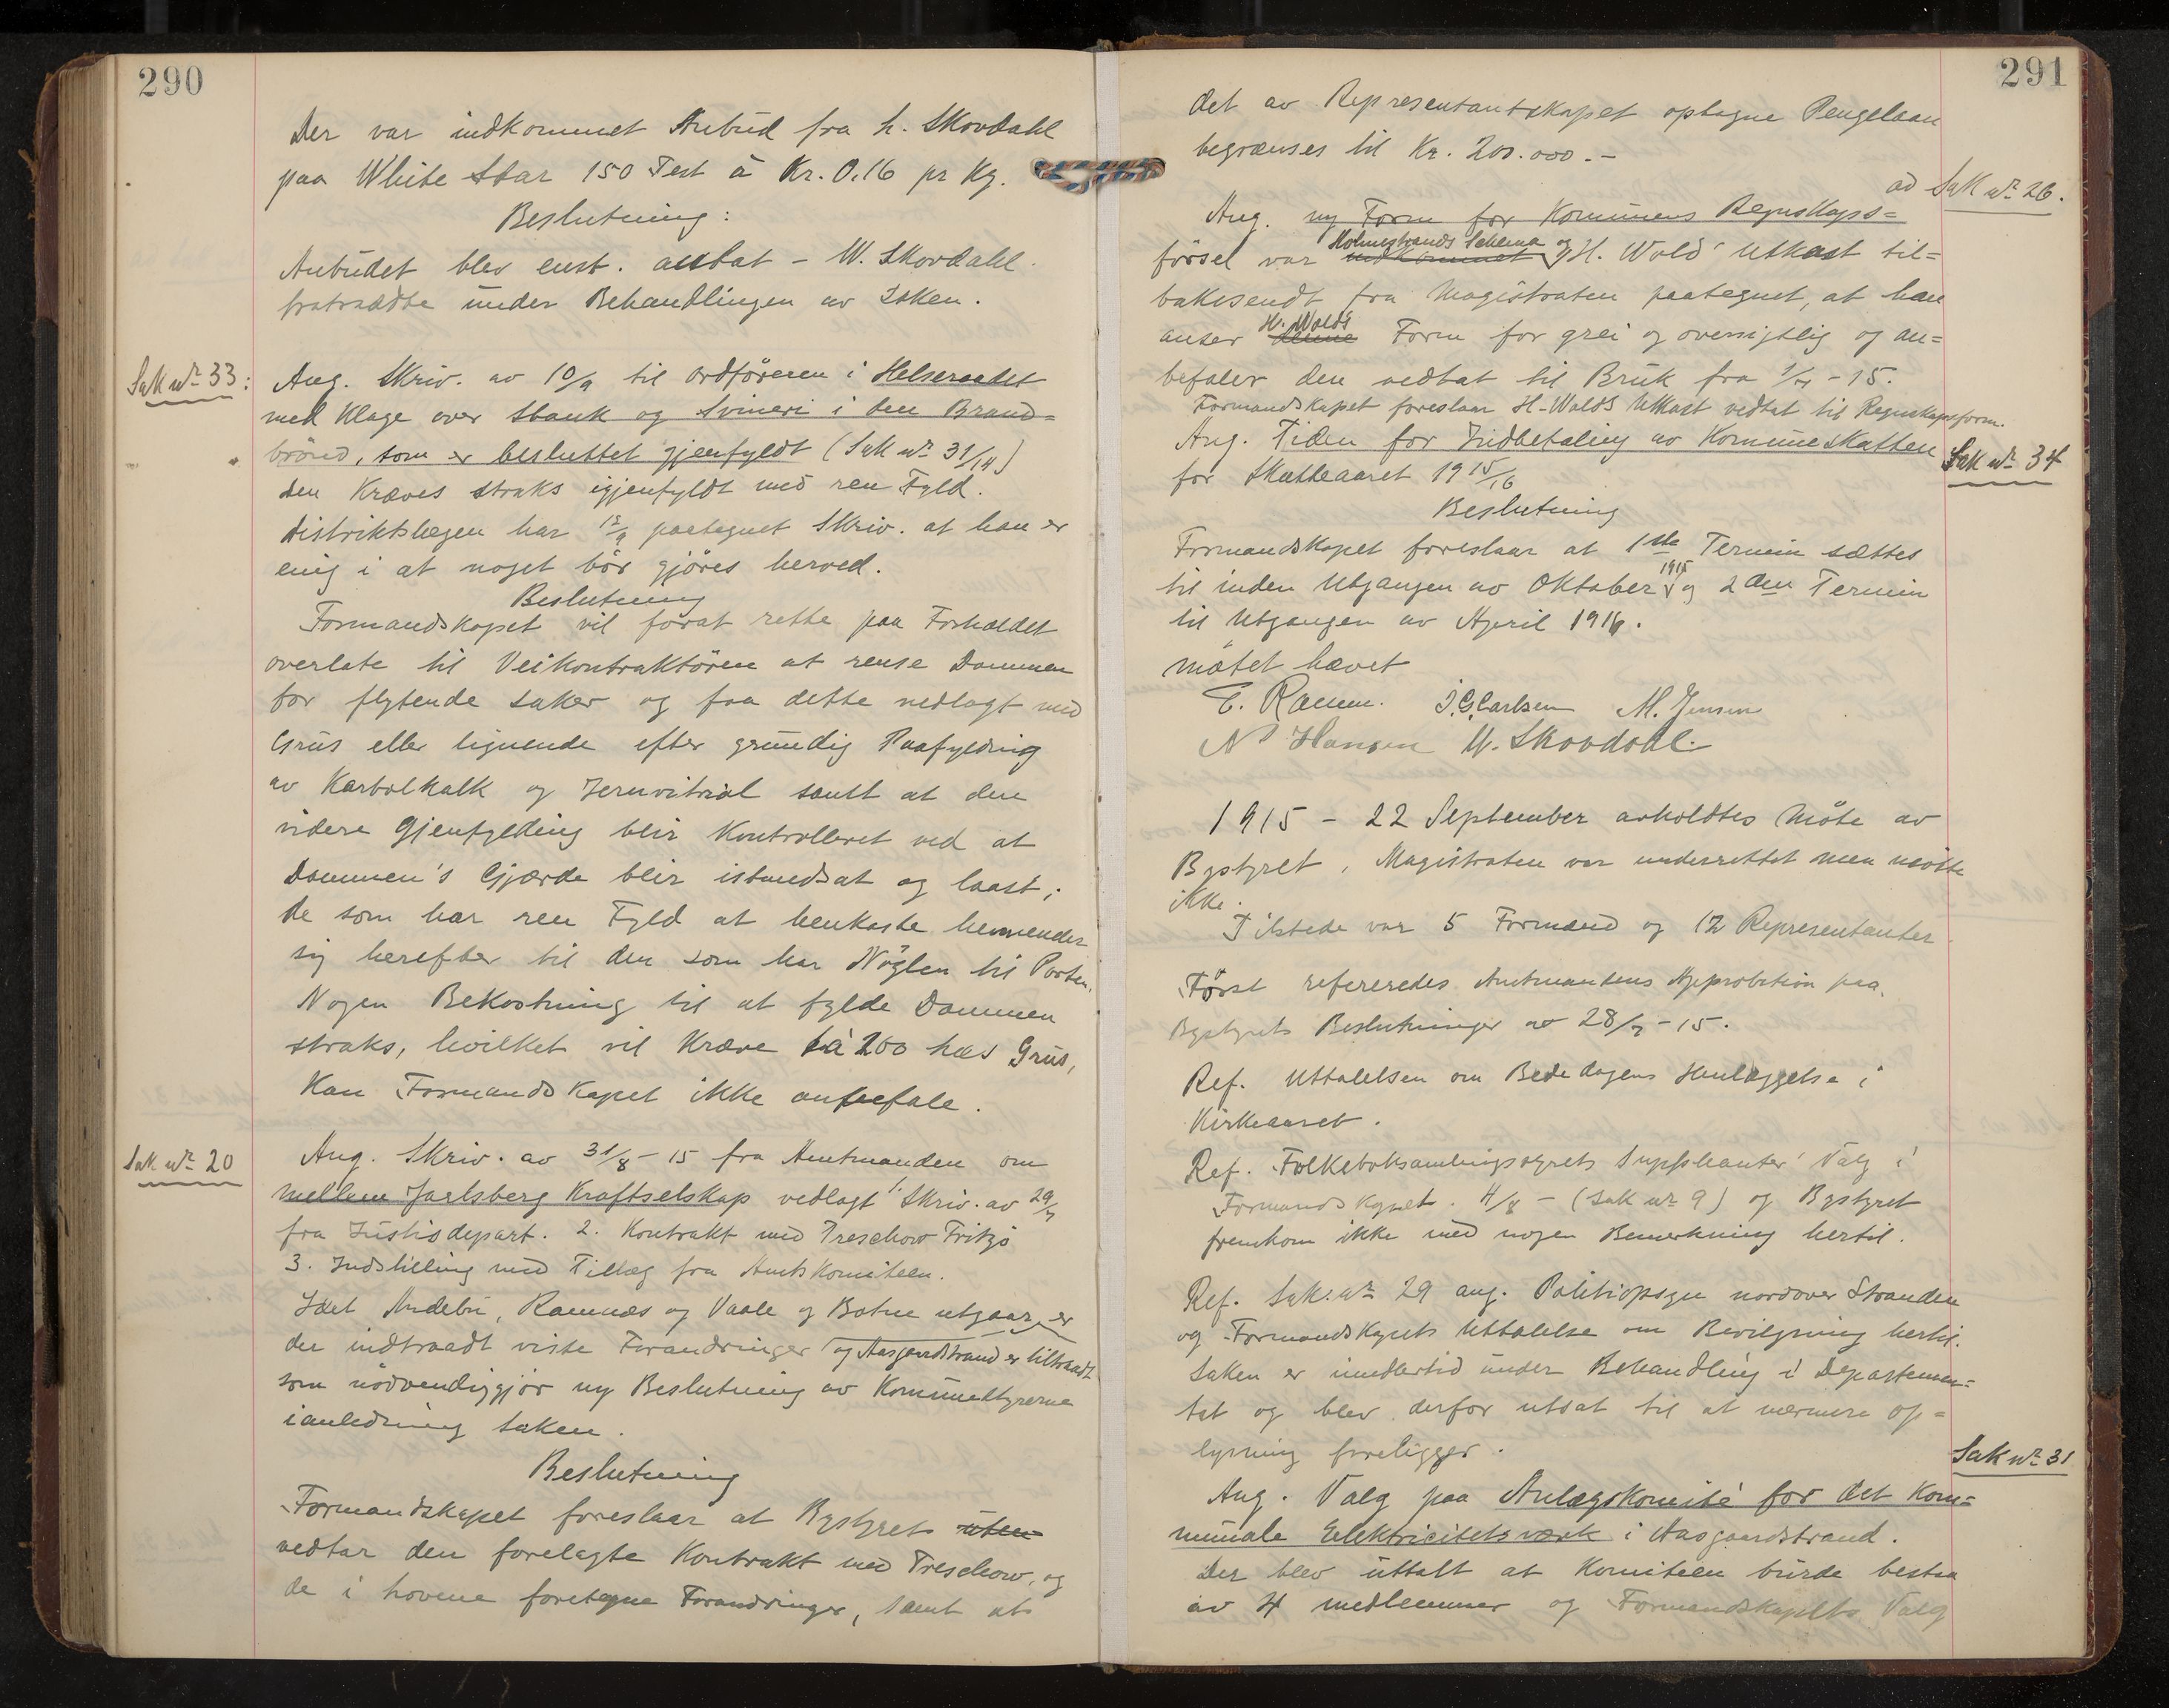 290
Der var indkommet Anbud fra h. Skovdahl
paa White Star 150 Test à Kr. 0.16 pr Kg.
Beslutning:
Anbudet blev enst. antat - W. Skovdahl
fratraadte under Behandlingen av Saken.
Sak nr 33:
Ang. Skriv. av 10/9 til Ordföreren i Helseraadet
med Klage over Stank og Svineri i den Brand=
brönd, som er besluttet gjenfyldt (Sak nr 31/14)
den Kræves straks igjenfyldt med ren Fyld.
Distriktslægen har 12/9 paategnet Skriv. at han er
enig i at noget bör gjöres herved.
Beslutning
Formandskapet vil forat rette paa Forholdet
overlate til Veikontraktören at rense Dammen
for flytende saker og faa dette nedlagt med
Grus eller lignende efter grundig Paafylding
av Karbolkalk og Jernvitriol samt at den
videre Gjenfylding blir Kontrolleret ved at
Dammen's Gjærde blir istandsat og laast;
de som har ren Fyld at henkaste henvender
sig herefter til den som har Nöglen til Porten.
Nogen Bekostning til at fylde Dammen
straks, hvilket vil Kræve à 200 læs Grus,
Kan Formandskapet ikke anbefale.
Sak nr 20
Ang. Skriv. av 31/8-15 fra Amtmanden om
mellem Jarlsberg Kraftselskap vedlagt 1. Skriv. av 29/7
fra Justisdepart. 2. Kontrakt med Treschow Fritzö
3. Indstilling med Tillæg fra Amtskomiteen.
Idet Andebu, Ramnæs og Vaale og Botne utgaar, er
der indtraadt visse Forandringer og Aasgaardstrand er tiltraadt
som nödvendiggjör ny Beslutning av Kommunestyrerne
ianledning saken.
Beslutning
Formandskapet foreslaar at Bystyret uten
vedtar den forelagte Kontrakt med Treschow, og
de i hovene foretagne Forandringer, samt at
291
det av Representantskapet optagne Pengelaan
begrænses til Kr. 200.000.-
ad Sak nr 26.
Ang. ny Form for Kommunens Regnskaps=
försel var indkommet Holmestrands Schema og H. Wold's Utkast til=
bakesendt fra Magistraten paategnet, at han
anser denne H. Wold's Form for grei og oversigtlig og an=
befaler den vedtat til Bruk fra 1/7-15.
Formandskapet foreslaar H. Wolds Utkast vedtat til Regnskapsform.
Sak nr 34
Ang. Tiden for Indbetaling av Kommuneskatten
for Skatteaaret 1915/16
Beslutning
Formandskapet foreslaar at 1ste Termin sættes
til inden Utgangen av Oktober 1915 og 2den Termin
til Utgangen av April 1916.
mötet hævet
E. Ramm. J. G. Carlsen M. Jensen
N Hansen W. Skovdahl.
1915 - 22 September avholdtes Möte av
Bystyret, Magistraten var underrettet men mötte
ikke.
Tilstede var 5 Formænd og 12 Representanter
Först refereredes Amtmandens Approbation paa
Bystyrets Beslutninger av 28/7-15.
Ref. Uttalelsen om Bededagens Henlæggelse i
Kirkeaaret.
Ref. Folkeboksamlingsstyrets Suppleanter Valg i
Formandskapet. 4/8 - (Sak nr 9) og Bystyret
fremkom ikke med nogen Bemerkning hertil.
Ref. Sak nr 29 ang. Politiopsyn nordover Stranden
og Formandskapets Uttalelse om Bevilgning hertil.
Saken er imidlertid under Behandling i Departemen=
tet og blev derfor utsat til at nærmere op=
lysning foreligger.
Sak nr 31
Ang. Valg paa Anlægskomité for det Kom=
munale Elektricitetsværk i Aasgaardstrand.
Der blev uttalt at Komiteen burde bestaa
av 4 medlemmer og Formandskapets Valg